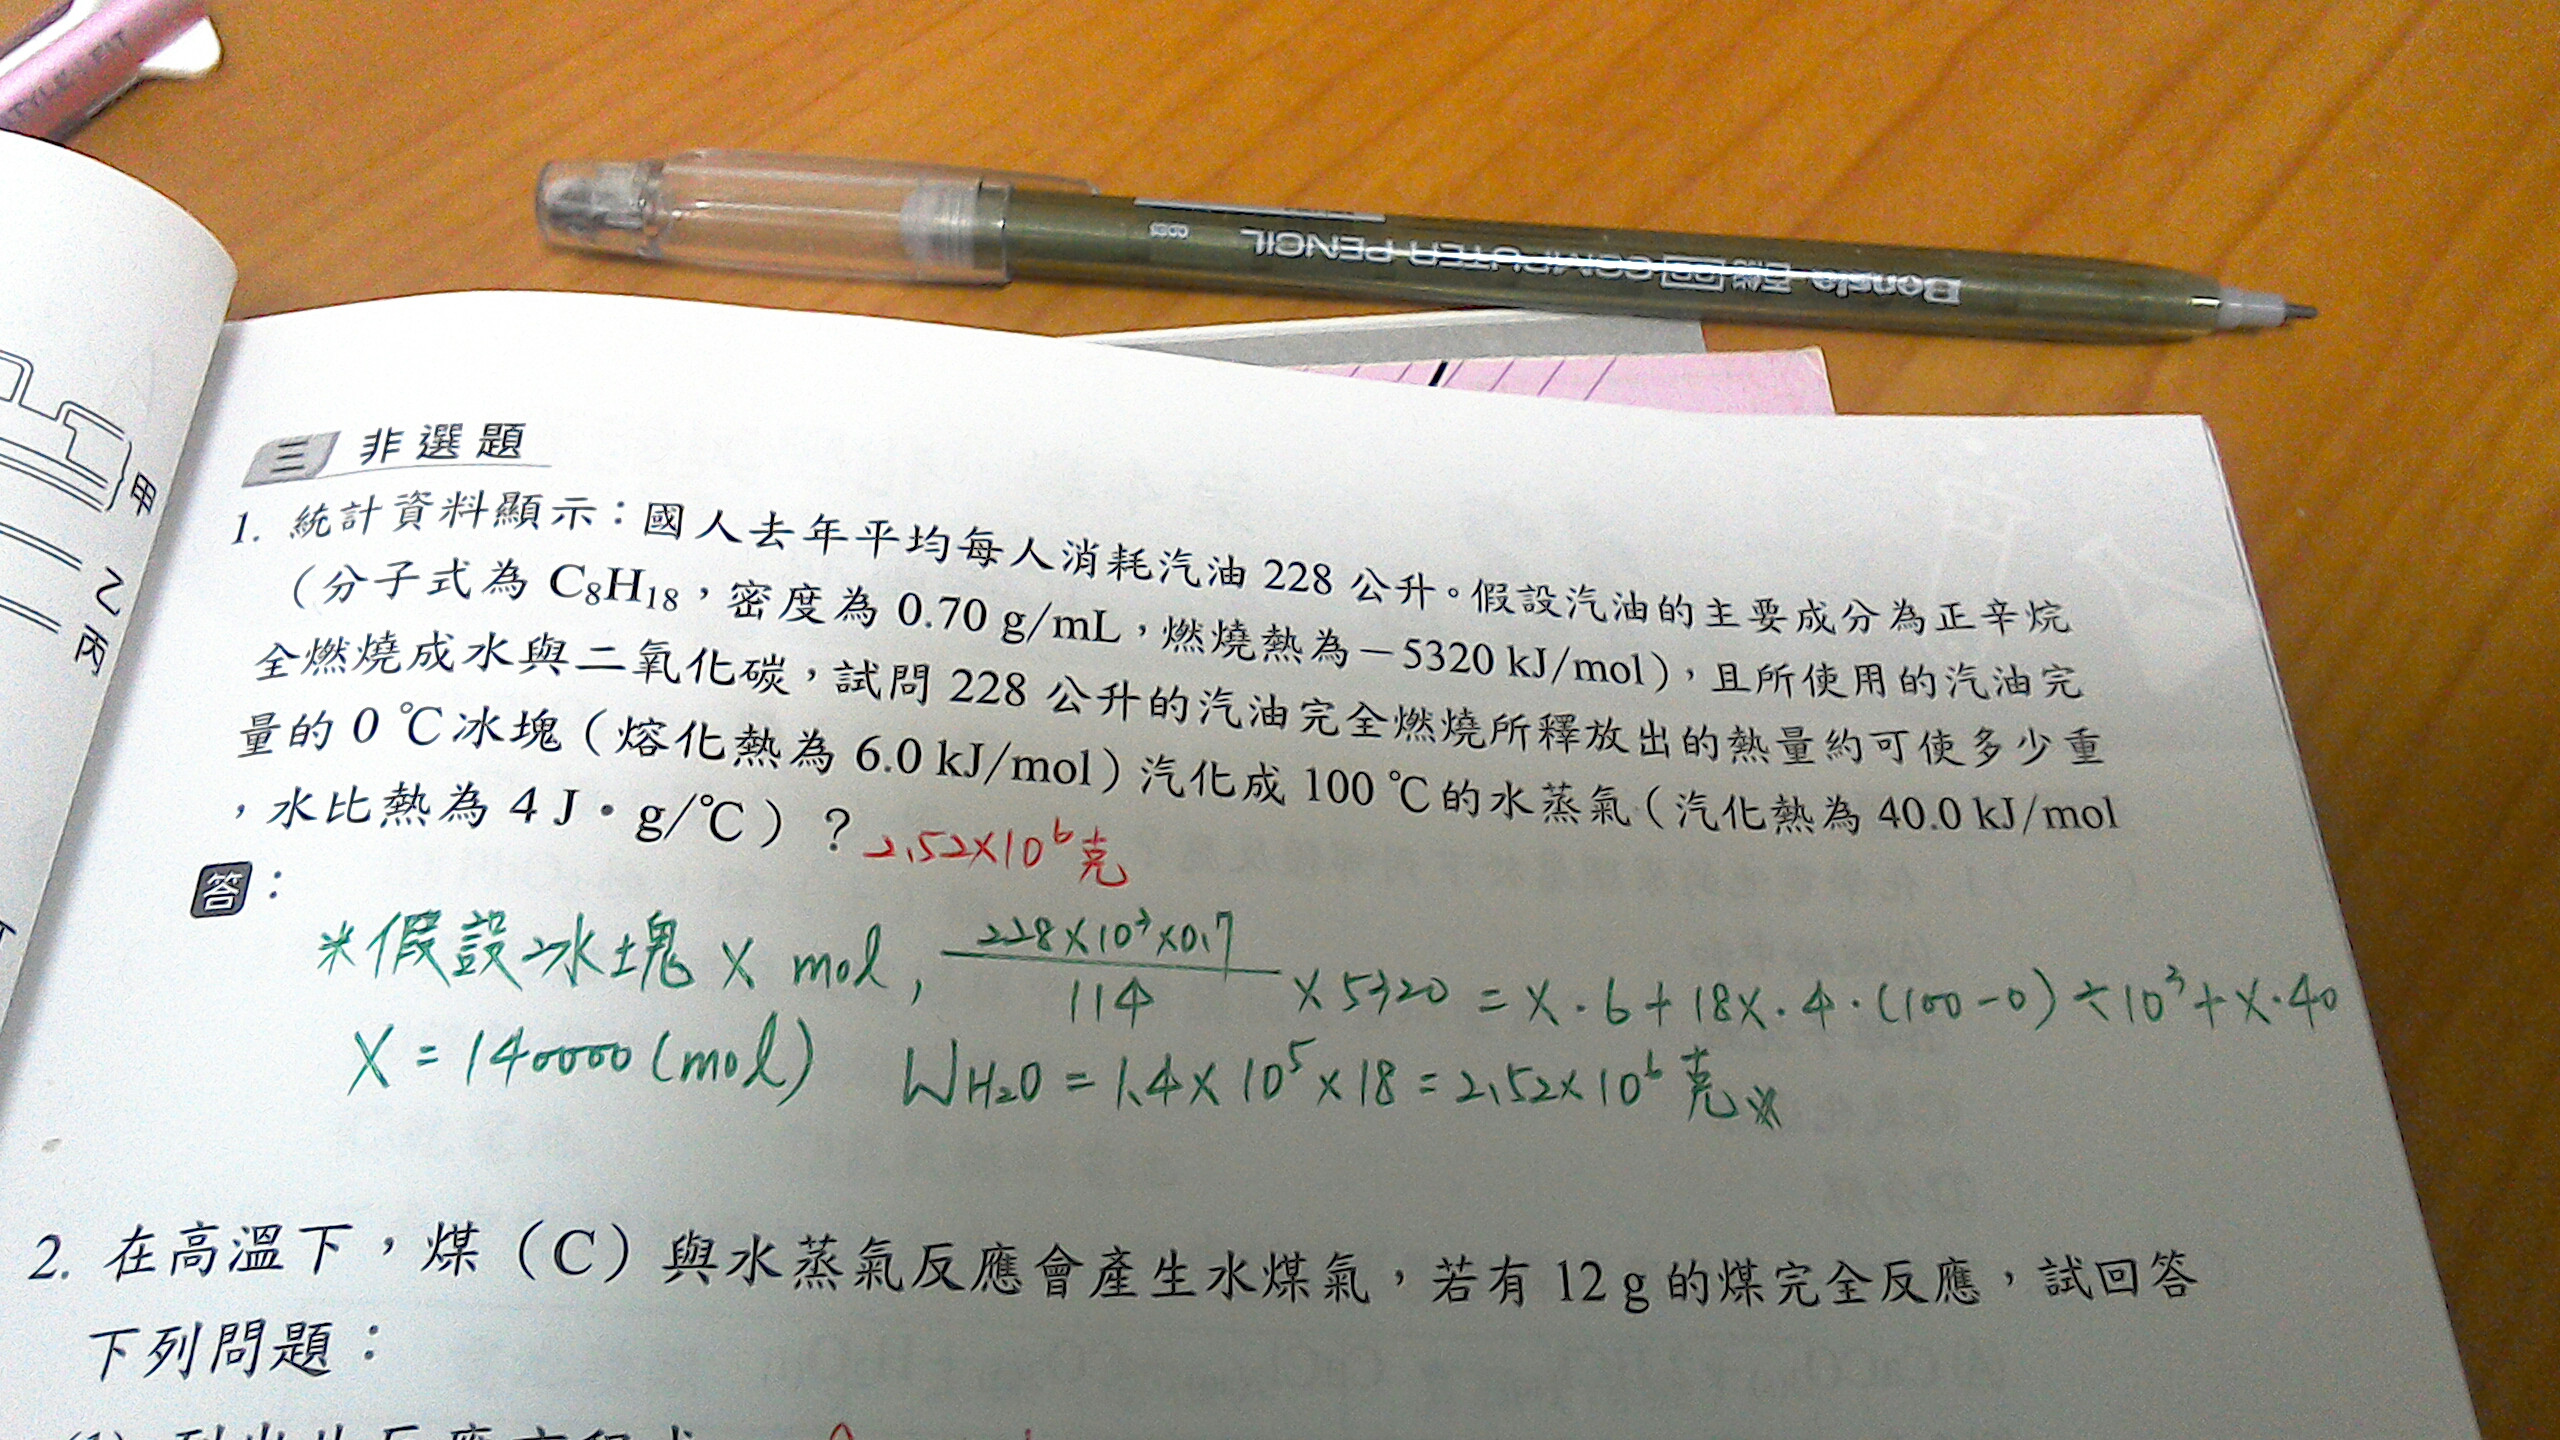 STYLE FIT
Bonsia 百能 2B COMPUTER PENCIL
甲
乙
丙
三 非選題
1. 統計資料顯示：國人去年平均每人消耗汽油 228 公升。假設汽油的主要成分為正辛烷
（分子式為 C₈H₁₈，密度為 0.70 g/mL，燃燒熱為－5320 kJ/mol），且所使用的汽油完
全燃燒成水與二氧化碳，試問 228 公升的汽油完全燃燒所釋放出的熱量約可使多少重
量的 0 ℃冰塊（熔化熱為 6.0 kJ/mol）汽化成 100 ℃的水蒸氣（汽化熱為 40.0 kJ/mol
，水比熱為 4 J・g/℃）？2.52×10⁶克
答：
*假設冰塊 X mol, 228×10³×0.7/114 × 5320 = X·6+18X·4·(100-0)÷10³+X·40
X = 140000(mol) W H₂O = 1.4×10⁵×18 = 2.52×10⁶克
2. 在高溫下，煤（C）與水蒸氣反應會產生水煤氣，若有 12 g 的煤完全反應，試回答
下列問題：